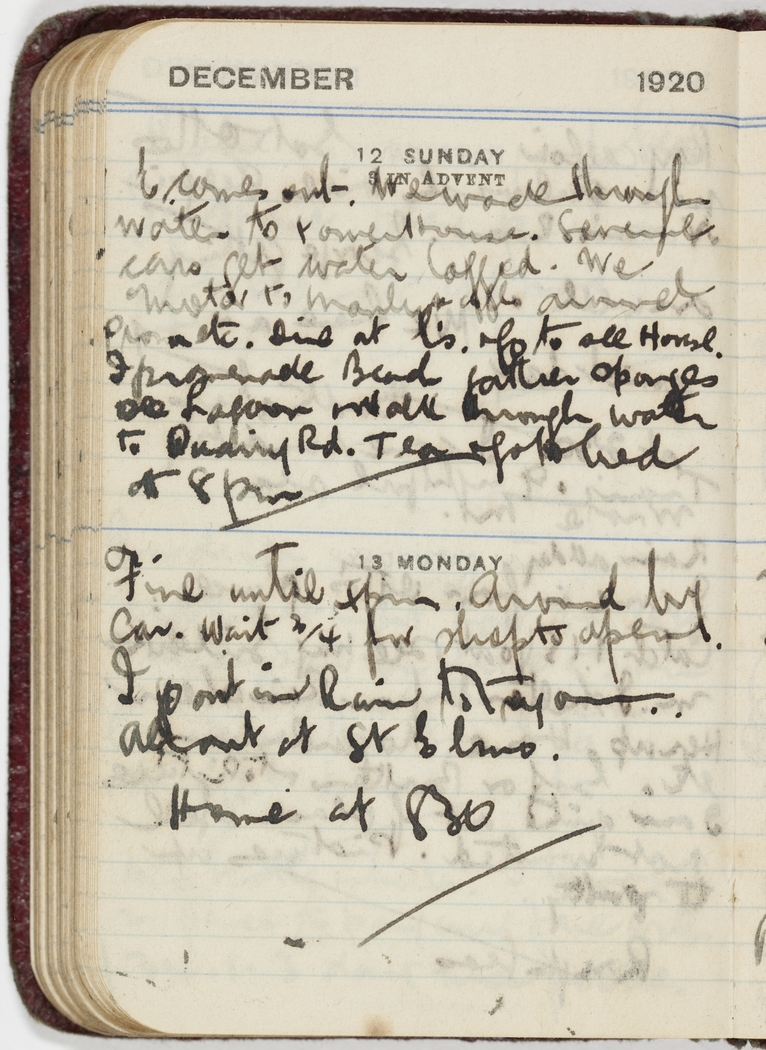 DECEMBER 1920
12 SUNDAY
3 IN ADVENT
comes out. We wade through
water to Power House. Several
cars get water logged. We
Motor to
etc. Dine at L's. up to see House.
I promenade Beach gather sponges
see Lagoon walk through water
to Quarry Rd. Tea
at 8 pm
13 MONDAY
Fine until pm. Around by
Car. Wait 3/4 for shop to open.
I out in Rain to
All out at St Elmo.
Home at 830